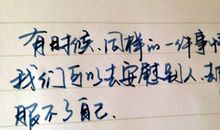 有时候,同样的一件事情
我们可以去安慰别人,却
服不了自己.